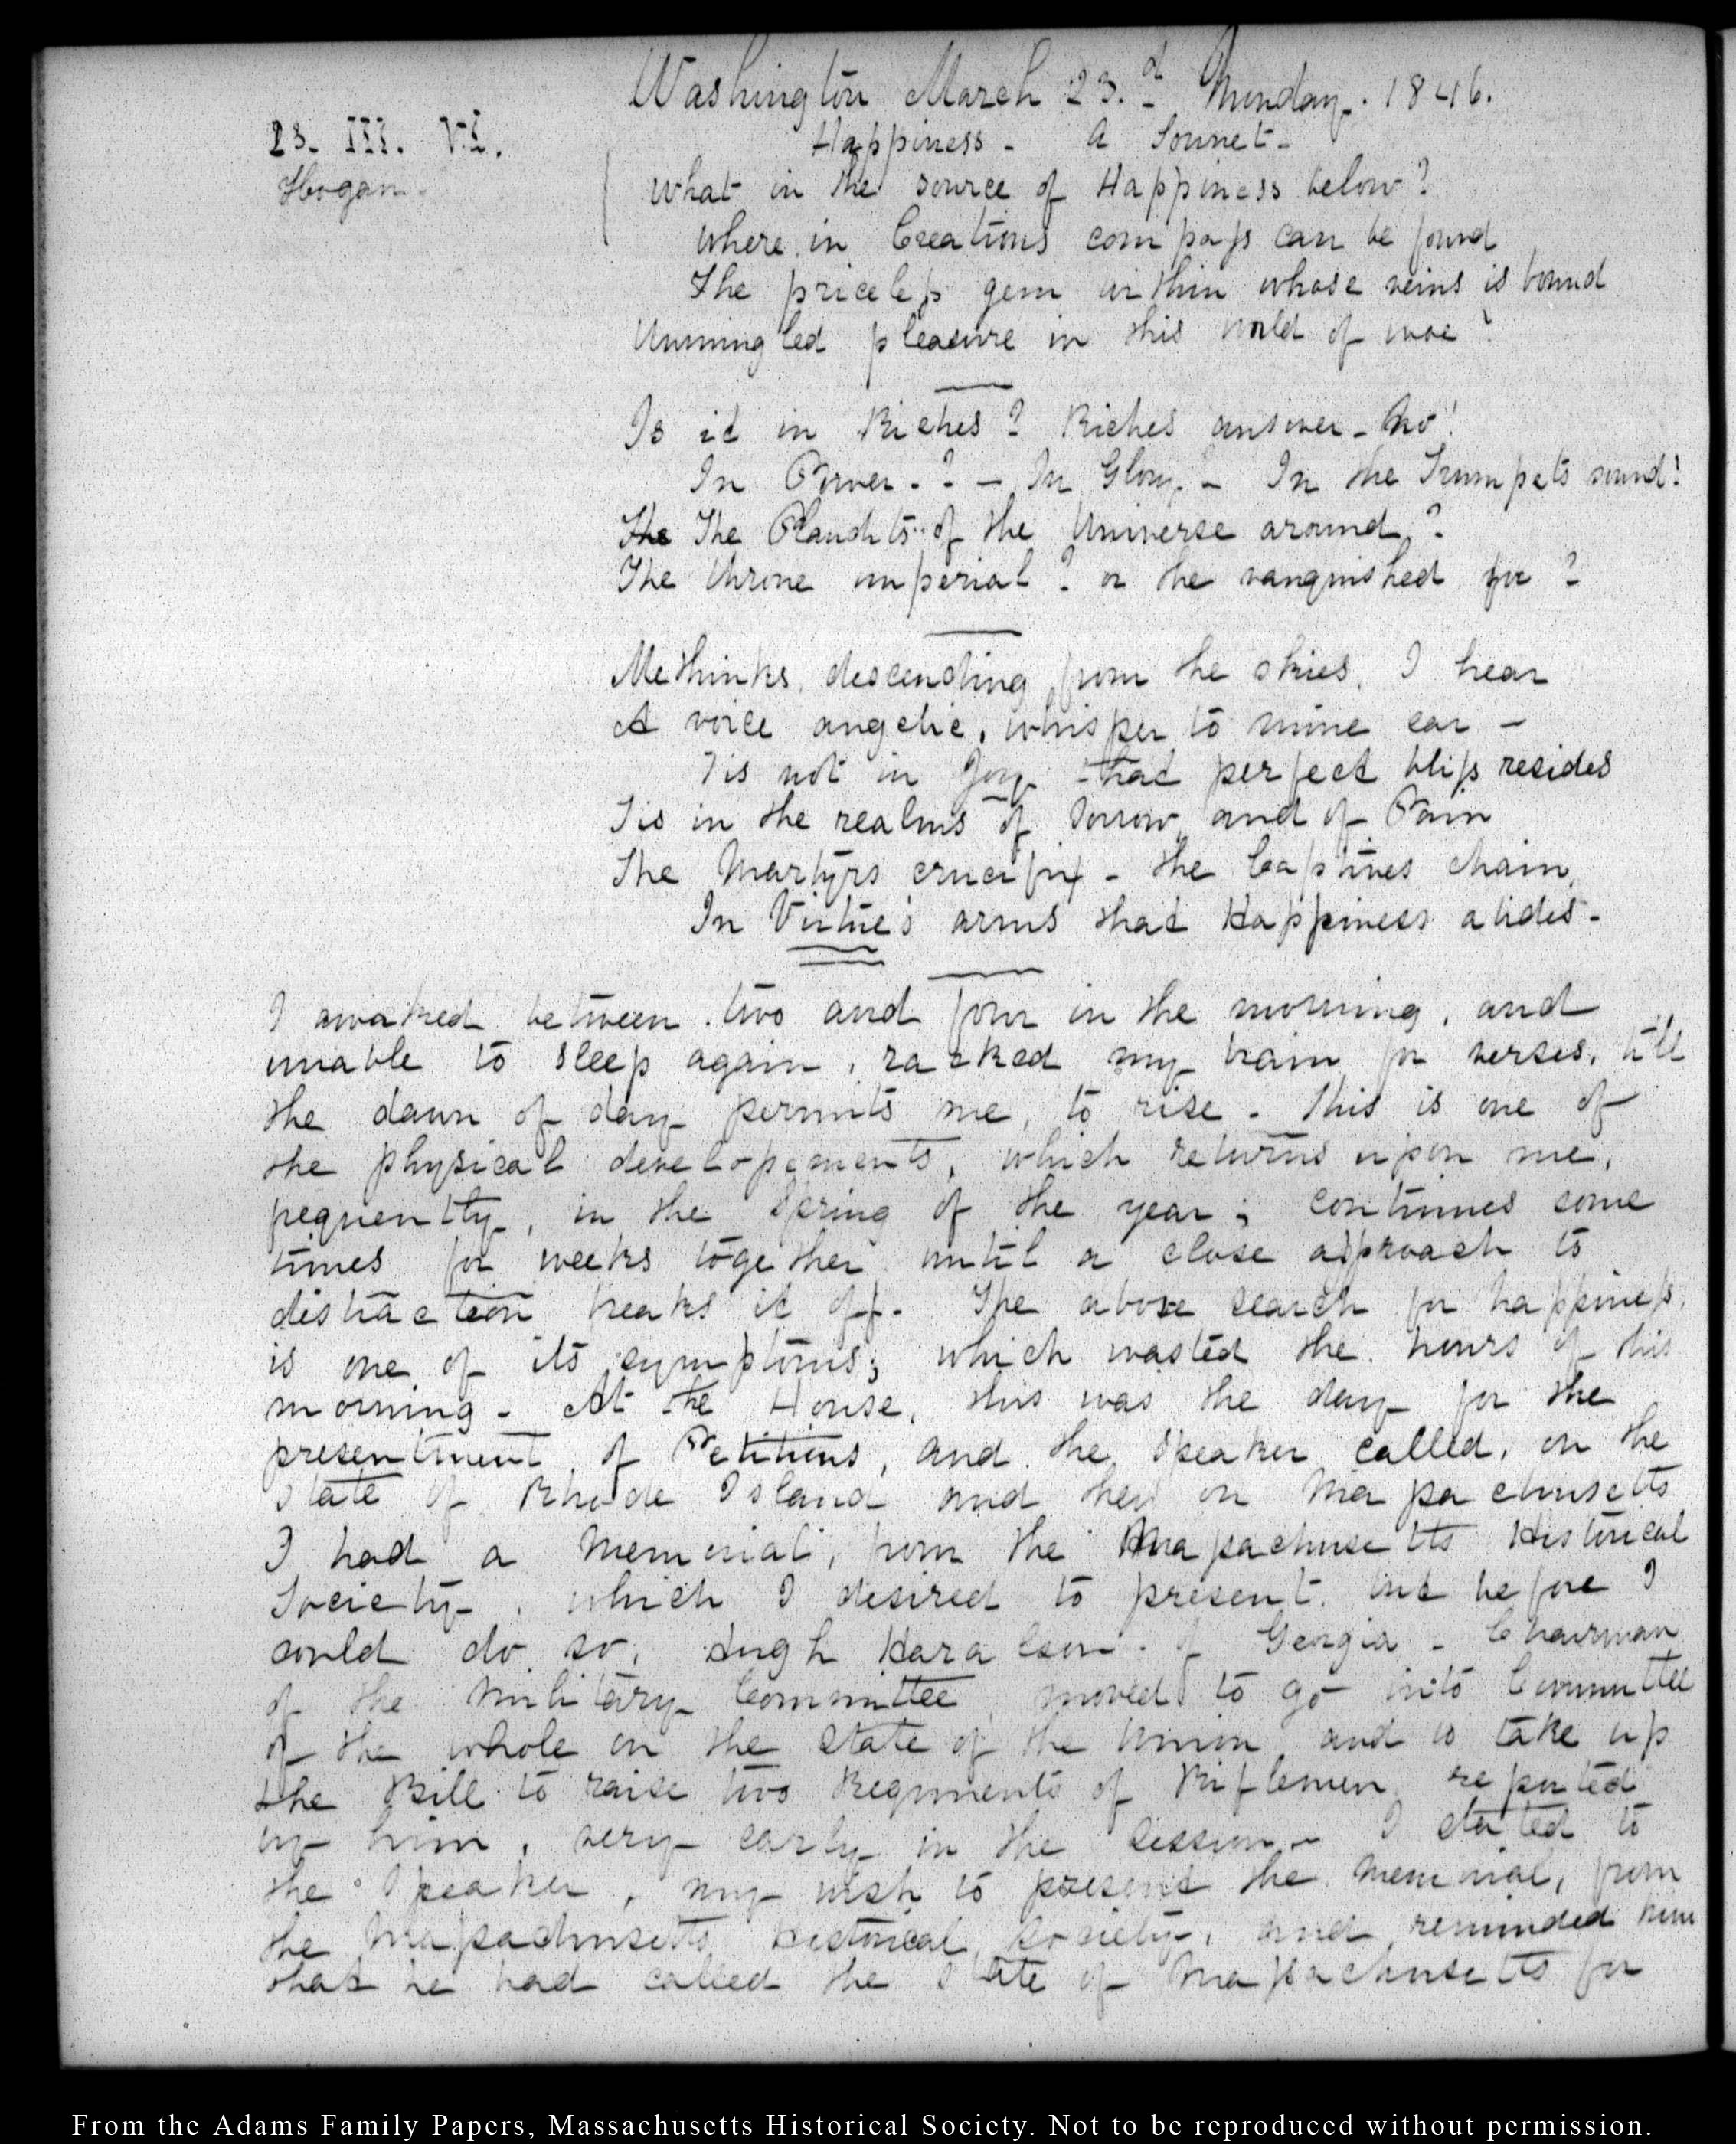 Washington March 23.d Monday. 1846.
23. III. VI.
Hogan.
Happiness - A Sonnet-
What in the source of Happiness below?
Where in Creations compass can be found
The priceless gem within whose veins is bound
Unmingled pleasure in this world of woe?
Is it in Riches? Riches answer - No!
In Power - ? - In Glory - In the Trumpets sound?
The The Plaudits of the Universe around?
The throne imperial? or the vanquished foe?
Methinks, descending from the skies, I hear
A voice angelic, whisper to mine ear -
Tis not in Joy that perfect bliss resides
Tis in the realms of Sorrow and of Pain
The Martyrs crucifix - the Captives chain,
In Virtue's arms that Happiness abides -
I awaked between two and four in the morning, and
unable to sleep again, racked my brain for verses, till
the dawn of day permits me, to rise - This is one of
the physical developements, which returns upon me,
frequently, in the Spring of the year; continues some
times for weeks together until a close approach to
distraction breaks it off. The above search for happiness,
is one of its symptoms; which wasted the hours of this
morning - At the House, this was the day for the
presentment of Petitions, and the Speaker called, on the
State of Rhode Island and then on Massachusetts
I had a Memorial, from the Massachusetts Historical
Society, which I desired to present, but before I
could do so, Hugh Haralson of Georgia - Chairman
of the Military Committee moved to go into Committee
of the whole on the State of the Union and to take up
the Bill to raise two Regiments of Riflemen, reported
by him, very early in the session - I stated to
the Speaker, my wish to present the Memorial, from
the Massachusetts Historical Society, and reminded him
that he had called the State of Massachusetts for
From the Adams Family Papers, Massachusetts Historical Society. Not to be reproduced without permission.